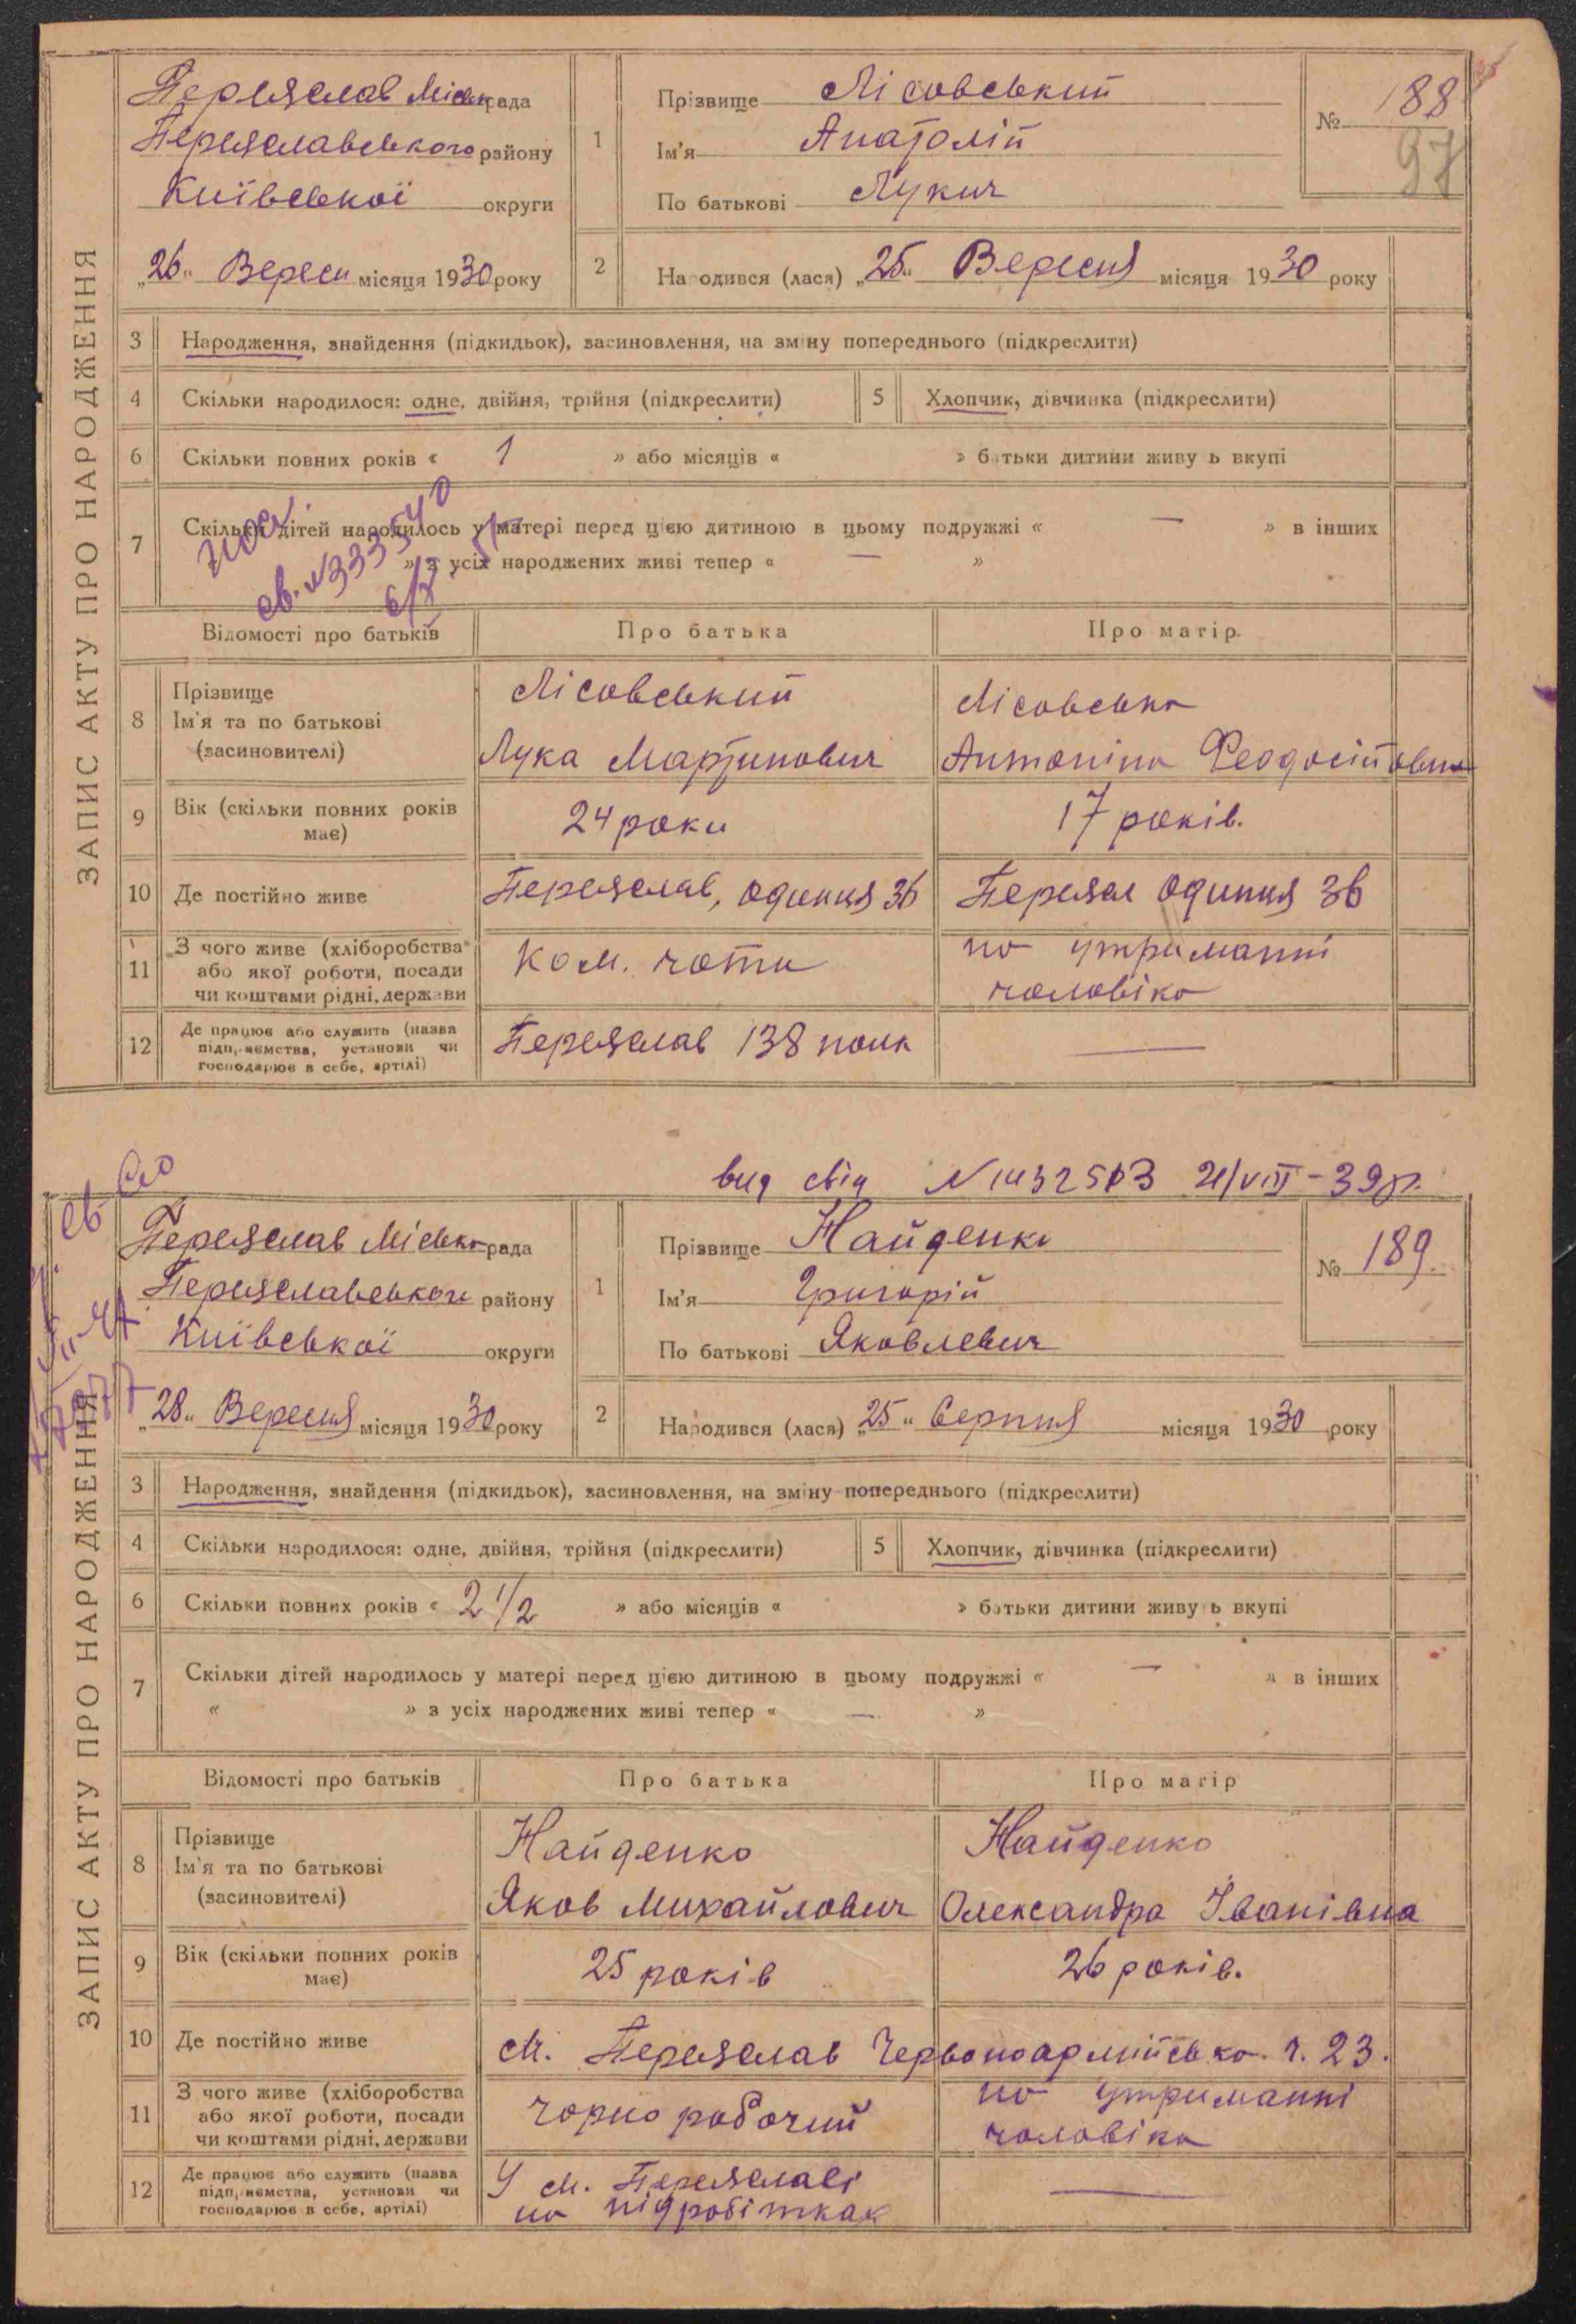 ЗАПИС АКТУ ПРО НАРОДЖЕННЯ
Переяслав Міськрада
Переяславського району
Київської округи
„26“ Вересн місяця 1930 року
1
Прізвище Лісовський
Ім'я Анатолій
По батькові Лукич
№ 188
97
2
Народився (лася) „25“ Вересня місяця 1930 року
3 Народження, знайдення (підкидьок), засиновлення, на зміну попереднього (підкреслити)
4 Скільки народилося: одне, двійня, трійня (підкреслити) 5 Хлопчик, дівчинка (підкреслити)
6 Скільки повних років « 1 » або місяців « » батьки дитини живуть вкупі
7 Скільки дітей народилось у матері перед цією дитиною в цьому подружжі « — » в інших
» з усіх народжених живі тепер « — »
св. №333540
Відомості про батьків Про батька Про матір
8 Прізвище
Ім'я та по батькові
(засиновителі)
Лісовський
Лука Мартинович
Лісовська
Антоніна Феодосійовна
9 Вік (скільки повних років має) 24 роки 17 років.
10 Де постійно живе Переяслав, Одинця 36 Переясл Одинця 36
11 З чого живе (хліборобства або якої роботи, посади чи коштами рідні, держави Ком. чоти на утриманні чоловіка
12 Де працює або служить (назва підприємства, установи чи господарює в себе, артілі) Переяслав 138 полк —
вид свід N1432513 21/VIII-39р.
ЗАПИС АКТУ ПРО НАРОДЖЕННЯ
Переяслав Міськрада
Переяславського району
Київської округи
„28“ Вересня місяця 1930 року
1
Прізвище Найденко
Ім'я Григорій
По батькові Яковлевич
№ 189
2
Народився (лася) „25“ Серпня місяця 1930 року
3 Народження, знайдення (підкидьок), засиновлення, на зміну попереднього (підкреслити)
4 Скільки народилося: одне, двійня, трійня (підкреслити) 5 Хлопчик, дівчинка (підкреслити)
6 Скільки повних років « 2 1/2 » або місяців « » батьки дитини живуть вкупі
7 Скільки дітей народилось у матері перед цією дитиною в цьому подружжі « — » в інших
« » з усіх народжених живі тепер « — »
Відомості про батьків Про батька Про матір
8 Прізвище
Ім'я та по батькові
(засиновителі)
Найденко
Яков Михайлович
Найденко
Олександра Іванівна
9 Вік (скільки повних років має) 25 років 26 років.
10 Де постійно живе м. Переяслав Червоноармійська ч. 23.
11 З чого живе (хліборобства або якої роботи, посади чи коштами рідні, держави чорноробочий на утриманні чоловіка
12 Де працює або служить (назва підприємства, установи чи господарює в себе, артілі) У м. Переяславі
на підробітках —